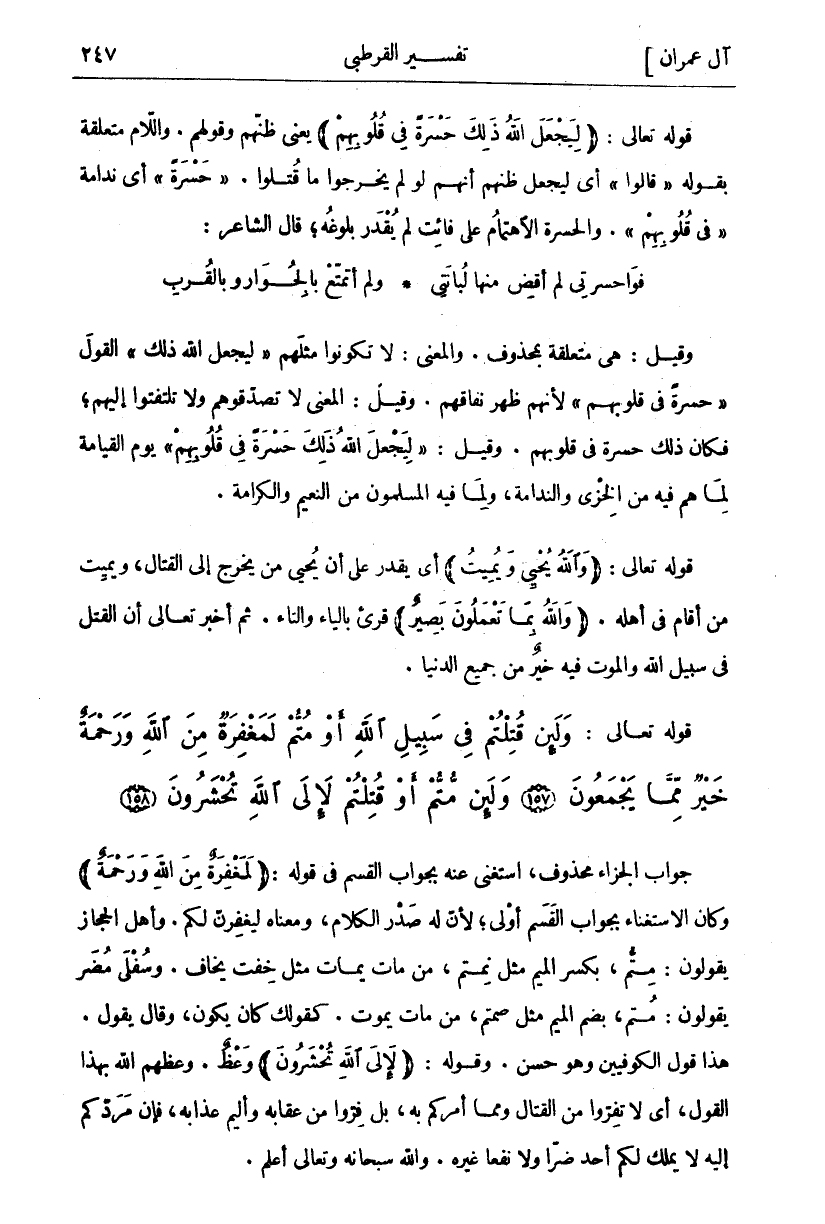 آل عمران ] تفسير القرطبى ٢٤٧
قوله تعالى : ﴿ لِيَجْعَلَ اللهُ ذَلِكَ حَسْرَةً فِي قُلُوبِهِمْ ﴾ يعنى ظنّهم وقولهم . واللّام متعلقة
بقوله « قالوا » أى ليجعل ظنهم أنهم لو لم يخرجوا ما قُتلوا . « حَسْرَةً » أى ندامة
« فى قُلُوبِهِمْ » . والحسرة الاهتمام على فائت لم يُقْدَر بلوغُه؛ قال الشاعر :
فوَاحسرتِى لم أقضِ منها لُبانَتِى * ولم أتمتّعْ بالجُوار وبالقُربِ
وقيل : هى متعلقة بمحذوف . والمعنى : لا تكونوا مثلَهم « ليجعل الله ذلك » القولَ
« حسرةً فى قلوبهم » لأنهم ظهر نفاقهم . وقيل : المعنى لا تصدّقوهم ولا تلتفتوا إليهم؛
فكان ذلك حسرة فى قلوبهم . وقيل : « لِيَجْعلَ اللهُ ذَلِكَ حَسْرَةً فِي قُلُوبِهِمْ» يوم القيامة
لِمَا هم فيه من الخِزْى والندامة، ولِمَا فيه المسلمون من النعيم والكرامة .
قوله تعالى : ﴿وَٱللهُ يُحْيِي وَيُمِيتُ﴾ أى يقدر على أن يُحيى من يخرج إلى القتال، ويميت
من أقام فى أهله . ﴿ وَاللهُ بِمَا تَعْمَلُونَ بَصِيرٌ﴾ قرئ بالياء والتاء . ثم أخبر تعالى أن القتل
فى سبيل الله والموت فيه خيرٌ من جميع الدنيا .
قوله تعالى : وَلَئِن قُتِلْتُمْ فِي سَبِيلِ ٱللَّهِ أَوْ مُتُّمْ لَمَغْفِرَةٌ مِنَ ٱللَّهِ وَرَحْمَةٌ
خَيْرٌ مِّمَّا يَجْمَعُونَ ﴿١٥٧﴾ وَلَئِن مُّتُّمْ أَوْ قُتِلْتُمْ لَإِلَى ٱللَّهِ تُحْشَرُونَ ﴿١٥٨﴾
جواب الجزاء محذوف، استغنى عنه بجواب القسم فى قوله : ﴿لَمَغْفِرَةٌ مِنَ اللهِ وَرَحْمَةٌ﴾
وكان الاستغناء بجواب القَسَم أوْلى؛ لأنّ له صَدْر الكلام، ومعناه ليغفرنّ لكم . وأهل الحجاز
يقولون : مِتُّم ، بكسر الميم مثل نِمتم ، من مات يمات مثل خِفت يخاف . وسُفْلَى مُضَر
يقولون : مُتم، بضم الميم مثل صمتم، من مات يموت . كقولك كان يكون، وقال يقول .
هذا قول الكوفيين وهو حسن . وقوله : ﴿ لَإِلَى ٱللهِ تُحْشَرُونَ ﴾ وَعْظٌ . وعظهم الله بهذا
القول، أى لا تفِرّوا من القتال ومما أمركم به، بل فِرّوا من عقابه وأليم عذابه، فإن مَرَدّكم
إليه لا يملك لكم أحد ضرّا ولا نفعا غيره . والله سبحانه وتعالى أعلم .